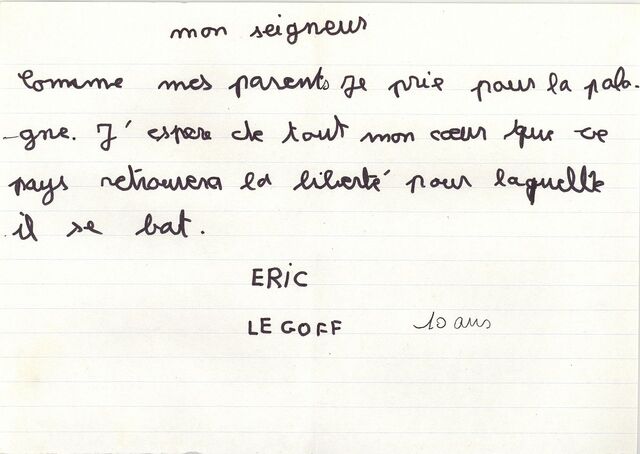 mon seigneur
Comme mes parents je prie pour la polo-
-gne. J'espere de tout mon cœur que ce
pays retrouvera la liberté pour laquelle
il se bat.
ERIC
LE GOFF 10 ans